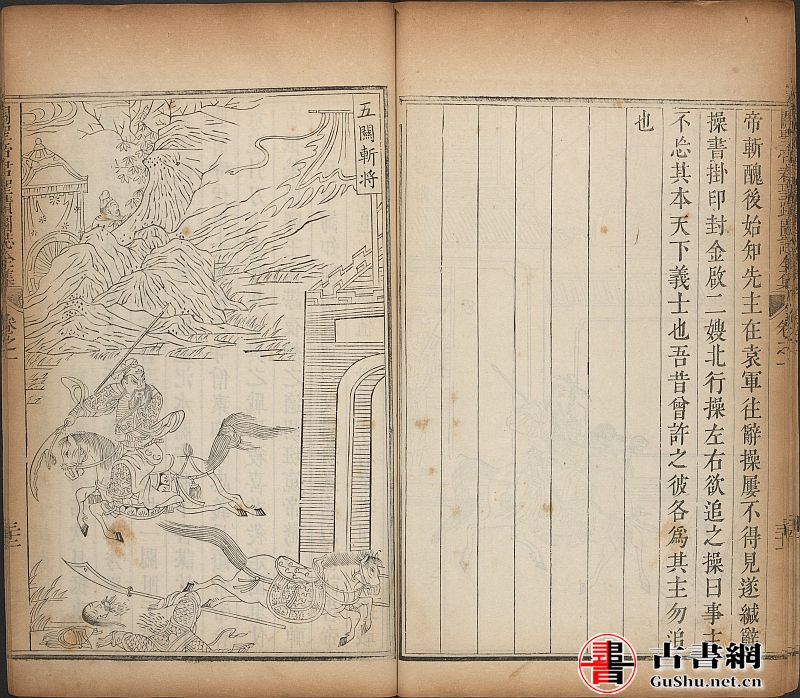 帝斬醜後始知先主在袁軍往辭操屢不得見遂緘辭
操書掛印封金啟二嫂北行操左右欲追之操曰事主
不忘其本天下義士也吾昔曾許之彼各為其主勿追
也
五關斬將
卷之一
三十二
書
古書網
GuShu.net.cn